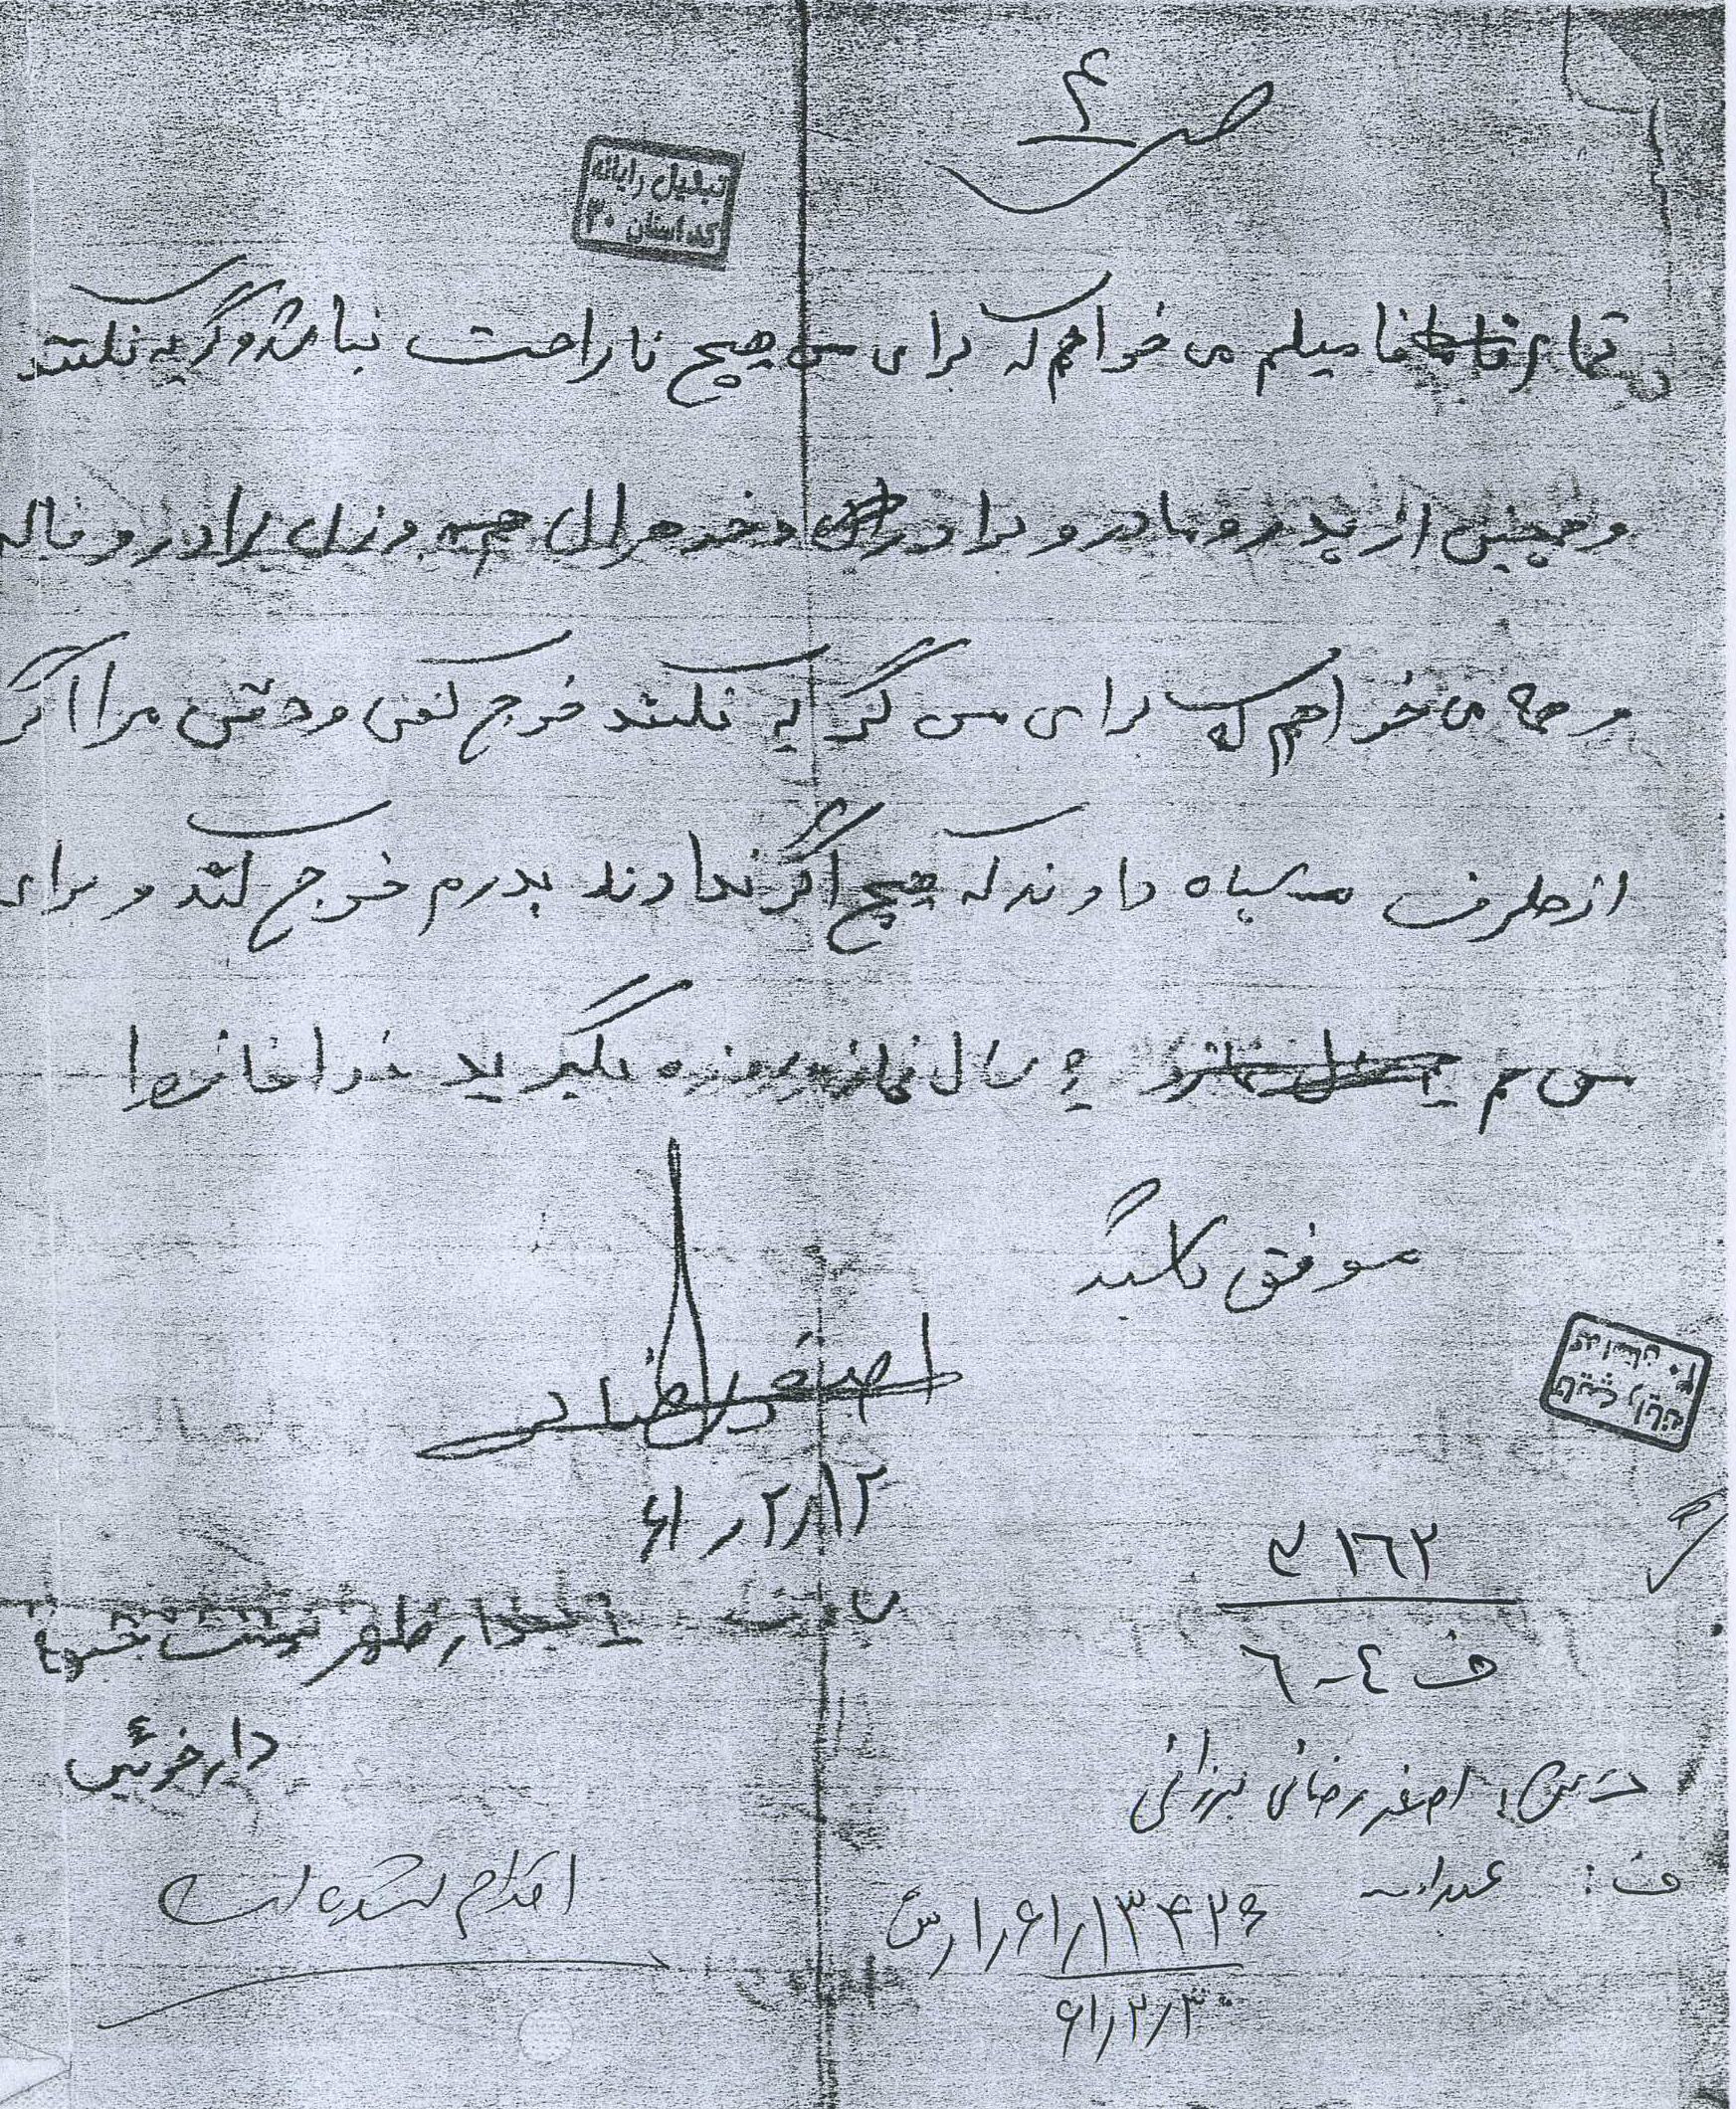 ص ۴
تبدیل رایانه
کد استان ۳۰
تمام فامیلم می خواهم که برای من هیچ ناراحت نباشد و گریه نکنند
و همچنین از پدر و مادر و برادر و خواهرال و زن برادر و خاله
و همه می خواهم که برای من گریه نکنند خرج کفن و دفن مرا اگر
از طرف سپاه دادند که هیچ اگر ندادند پدرم خرج کند و برای
من هم سال نماز و روزه بگیرید خدا
موفق باشید
اصغر رضائی
۶۱/۲/۱۲
دارخوئین
۱۶۲
ف ۴-۶
اصغر رضائی برزانی
ف:
اقدام شده است
۱۳۴۲۶
۶۱/۲/۳۰